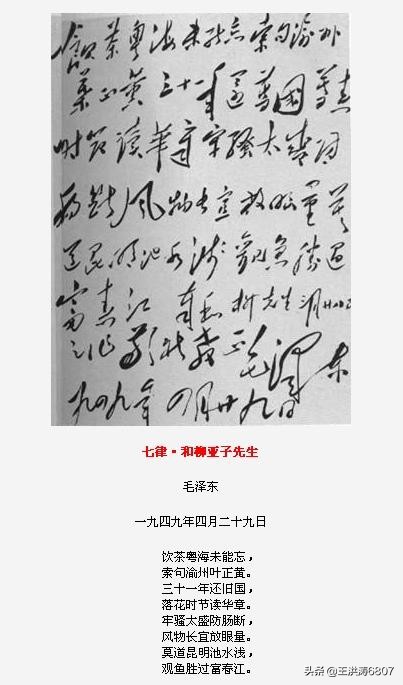 飲茶粤海未能忘索句渝州
葉正黄三十一年還舊國落花
时節讀華章牢騷太盛防
腸斷風物长宜放眼量莫
道昆明池水浅觀魚勝過
富春江 奉和柳先生三月廿八日
之作敬祈教正毛泽东
一九四九年四月廿九日
七律·和柳亚子先生
毛泽东
一九四九年四月二十九日
饮茶粤海未能忘，
索句渝州叶正黄。
三十一年还旧国，
落花时节读华章。
牢骚太盛防肠断，
风物长宜放眼量。
莫道昆明池水浅，
观鱼胜过富春江。
头条 @王洪涛6807